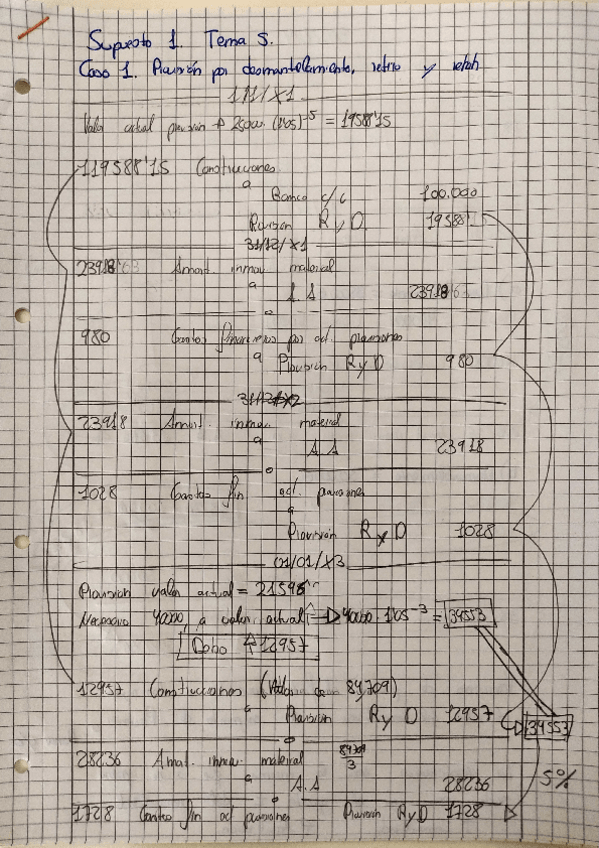 Supuesto 1. Tema 5.
Caso 1. Provisión por desmantelamiento, retiro y rehab
1/1/X1
Valor actual provisión → 25000·(1'05)^-5 = 19588'15
119588'15 Construcciones
a
Banco c/c 100.000
Provisión R y D. 19588'15
31/12/X1
23918'63 Amort. inmov. material
a A.A 23918'63
980 Gastos financieros por act. provisiones
a Provisión R y D 980
31/12/X2
23918 Amort. inmov. material
a
A.A 23918
1028 Gastos fin act. provisiones
a
Provisión R y D 1028
01/01/X3
Provisión valor actual = 21596
Necesario 40000, a valor actual 40000·1'05^-3 = 34553
Debo ↑ 12957
12957 Construcciones (84,709)
a Provisión R y D 12957
34553
28236 Amort. inmov. material 84709/3
a A.A 28236
5%
1728 Gastos fin act provisiones Provisión R y D 1728